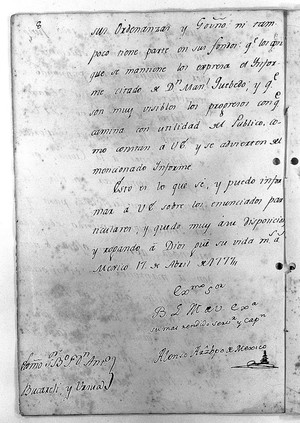 8
sus Ordenanzas y Govno ni tam
poco tiene parte en sus fondos: qe los con
que se mantiene los expresa el Informe
citado de Dn Manl Quebedo; y qe
son muy visibles los progresos con qe
camina con utilidad del Publico, co
mo constan á VE y se advierten del
mencionado Informe
Esto es lo que se, y puedo infor
mar á VE sobre los enunciados par
ticulares, y quedo muy á su disposicion
y rogando á Dios gue su vida ms as
Mexico 17 de Abril de
Exmo Sor
B L M de V Exa
su mas rendido servr y Capn
Alonso Arzbpo de Mexico
Exmo Sr Bo Fr Dn Anto
Bucareli, y Ursua